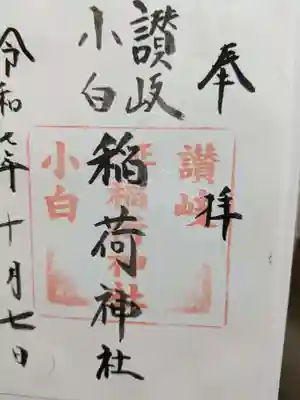 奉拝
讃岐
小白
稲荷神社
令和七年十月七日
讃岐
小白